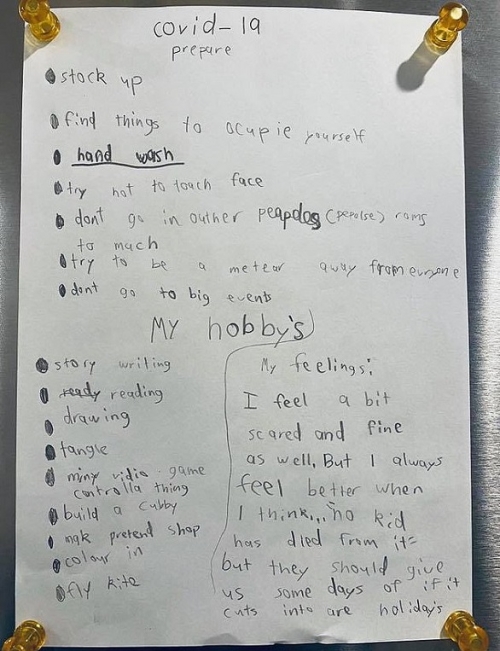 covid-19
prepare
stock up
find things to ocupie yourself
hand wash
try not to touch face
dont go in outher (pepolse) roms
to mach
try to be a metear away from
dont go to big events
MY hobby's
story writing
reading
drawing
tangle
miny vidio game
controlla thing
build a cubby
mak pretend shop
colour in
fly kite
My feelings:
I feel a bit
scared and fine
as well, But I always
feel better when
I think... no kid
has died from it
but they should give
us some days of if it
cuts into are holidays